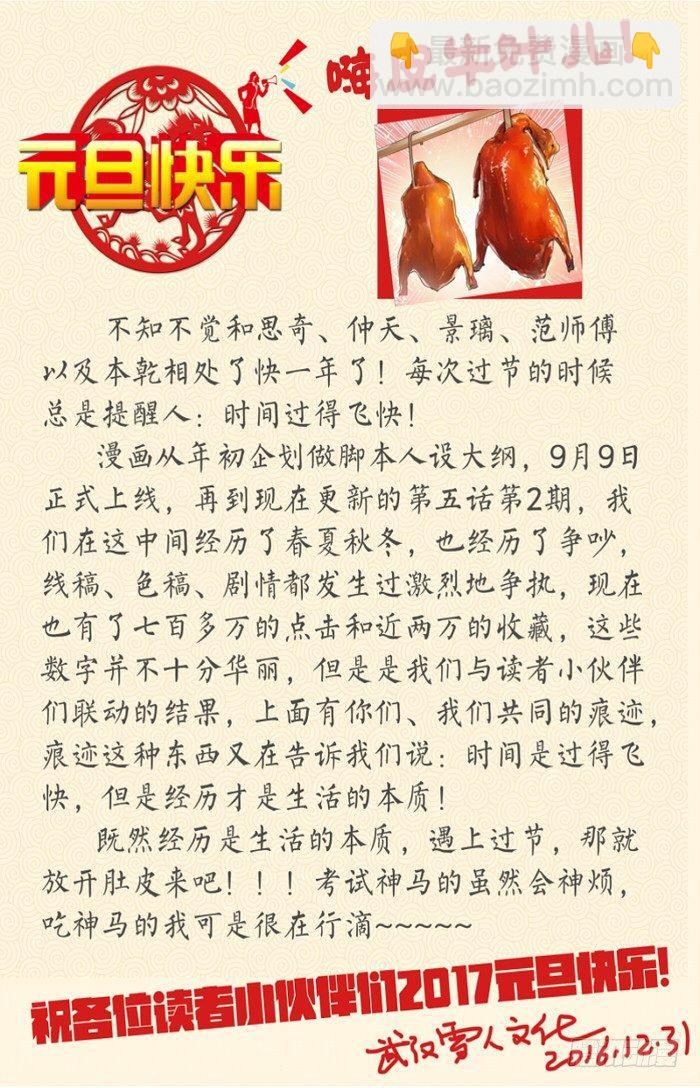 嗨 皮牛叶儿!
最新免费漫画
www.baozimh.com
元旦快乐
不知不觉和思奇、仲天、景璃、范师傅
以及本乾相处了快一年了！每次过节的时候
总是提醒人：时间过得飞快！
漫画从年初企划做脚本人设大纲，9月9日
正式上线，再到现在更新的第五话第2期，我
们在这中间经历了春夏秋冬，也经历了争吵，
线稿、色稿、剧情都发生过激烈地争执，现在
也有了七百多万的点击和近两万的收藏，这些
数字并不十分华丽，但是是我们与读者小伙伴
们联动的结果，上面有你们、我们共同的痕迹，
痕迹这种东西又在告诉我们说：时间是过得飞
快，但是经历才是生活的本质！
既然经历是生活的本质，遇上过节，那就
放开肚皮来吧！！！考试神马的虽然会神烦，
吃神马的我可是很在行滴~~~~~
祝各位读者小伙伴们2017元旦快乐!
武汉雪人文化
2016.12.31